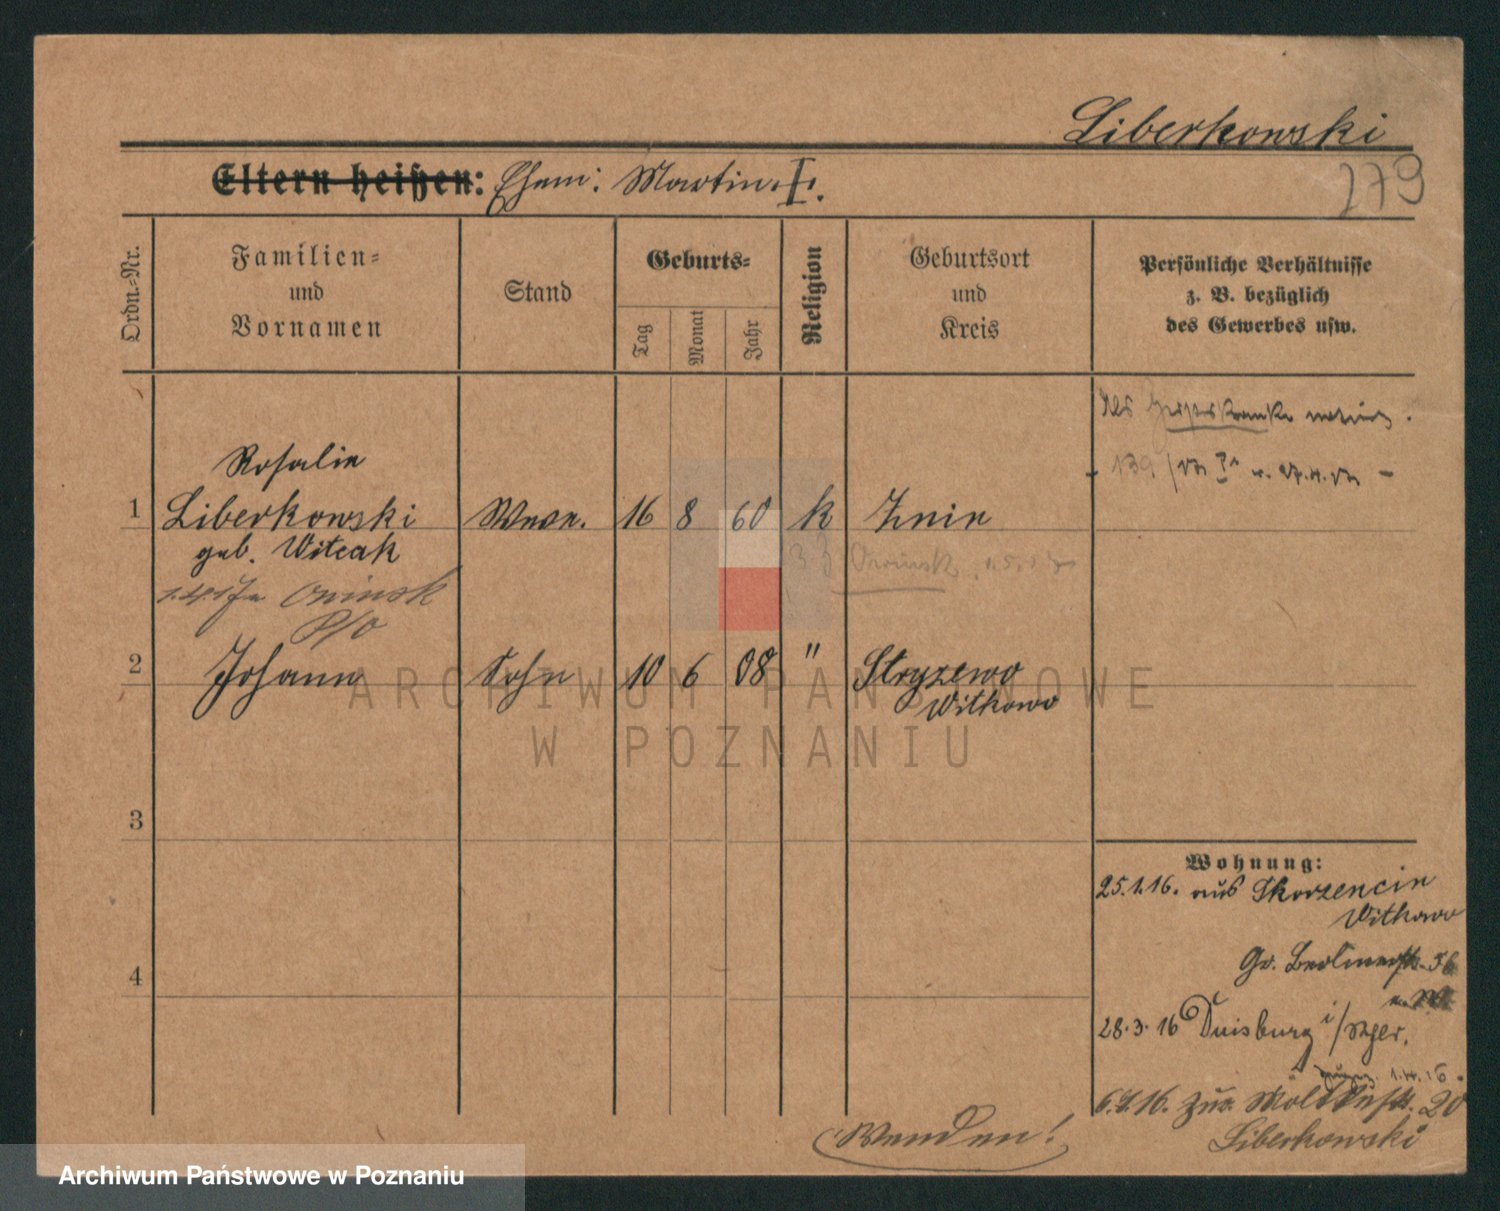 Liberkowski
279
Eltern heißen: Ehem: Martin I.
Ordn.-Nr.
Familien-
und
Vornamen
Stand
Geburts-
Tag
Monat
Jahr
Religion
Geburtsort
und
Kreis
Persönliche Verhältnisse
z. B. bezüglich
des Gewerbes usw.
Rosalie
1 Liberkowski Wwe. 16 8 60 k Znin
geb. Witcak
2 Johann Sohn 10 6 08 " Stryzewo
Witkowo
3
4
Wohnung:
25.1.16. aus Skorzencin
Witkowo
Gr. Berlinerstr. 56
28.3.16 Duisburg
6.7.16. zur. Moltkestr. 20
Liberkowski
Wenden!
ARCHIWUM PAŃSTWOWE
W POZNANIU
Archiwum Państwowe w Poznaniu